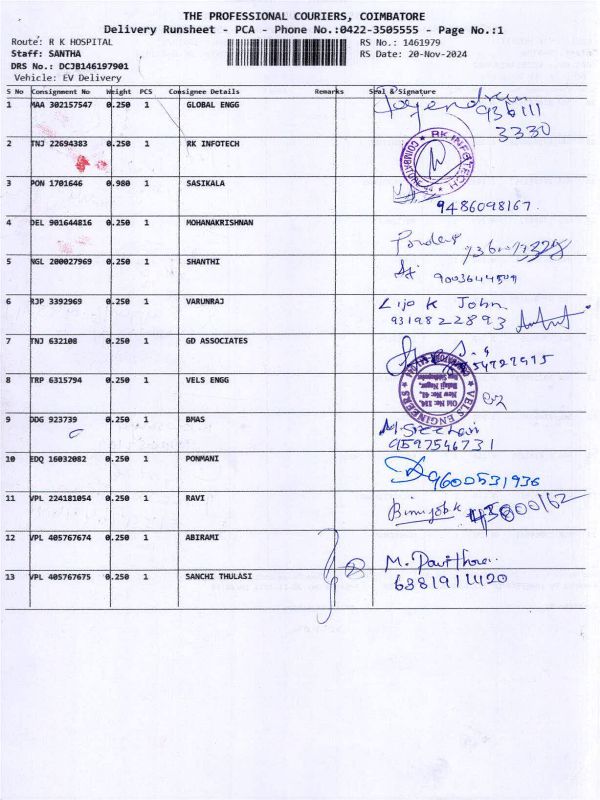 THE PROFESSIONAL COURIERS, COIMBATORE
Delivery Runsheet - PCA - Phone No.:0422-3505555 - Page No.:1
Route: R K HOSPITAL
RS No.: 1461979
Staff: SANTHA
RS Date: 20-Nov-2024
DRS No.: DCJB146197901
Vehicle: EV Delivery
S No Consignment No Weight PCS Consignee Details Remarks Seal & Signature
1 MAA 302157547 0.250 1 GLOBAL ENGG
936111
3330
2 TNJ 22694383 0.250 1 RK INFOTECH
RK INFOTECH COIMBATORE
3 PON 1701646 0.980 1 SASIKALA
9486098167.
4 DEL 901644816 0.250 1 MOHANAKRISHNAN
5 NGL 200027969 0.250 1 SHANTHI
6 RJP 3392969 0.250 1 VARUNRAJ Lijo K John
9319822893
7 TNJ 632108 0.250 1 GD ASSOCIATES
8 TRP 6315794 0.250 1 VELS ENGG
VELS ENGINEERS
Old No: 324,
New No: 42,
Balaji Nagar,
9 DDG 923739 0.250 1 BMAS
9597546731
10 EDQ 16032082 0.250 1 PONMANI 9600531936
11 VPL 224181054 0.250 1 RAVI
12 VPL 405767674 0.250 1 ABIRAMI
13 VPL 405767675 0.250 1 SANCHI THULASI